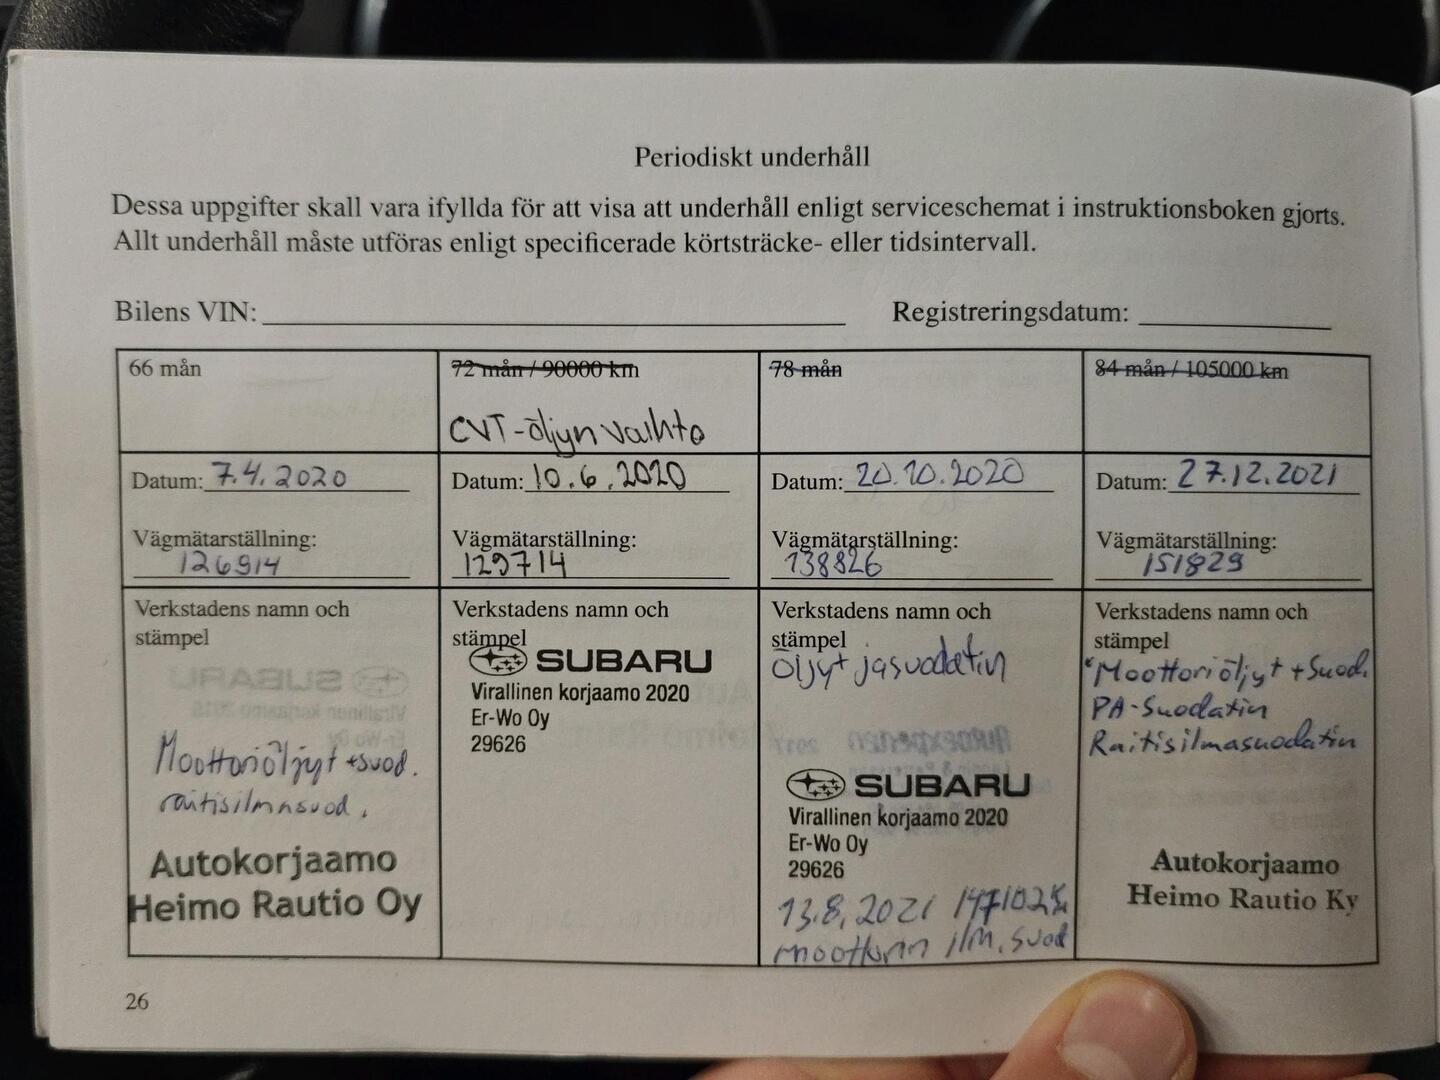 Periodiskt underhåll
Dessa uppgifter skall vara ifyllda för att visa att underhåll enligt serviceschemat i instruktionsboken gjorts.
Allt underhåll måste utföras enligt specificerade körtsträcke- eller tidsintervall.
Bilens VIN:
Registreringsdatum:
66 mån
Datum: 7.4.2020
Vägmätarställning:
126914
Verkstadens namn och
stämpel
Moottoriöljyt + suod.
raitisilmasuod.
Autokorjaamo
Heimo Rautio Oy
72 mån / 90000 km
CVT-öljyn vaihto
Datum: 10.6.2020
Vägmätarställning:
129714
Verkstadens namn och
stämpel
SUBARU
Virallinen korjaamo 2020
Er-Wo Oy
29626
78 mån
Datum: 20.10.2020
Vägmätarställning:
138826
Verkstadens namn och
stämpel
öljyt ja suodatin
SUBARU
Virallinen korjaamo 2020
Er-Wo Oy
29626
13.8.2021 147102
moottorin ilm. suod
84 mån / 105000 km
Datum: 27.12.2021
Vägmätarställning:
151829
Verkstadens namn och
stämpel
Moottoriöljyt + Suod.
PA-Suodatin
Raitisilmasuodatin
Autokorjaamo
Heimo Rautio Ky
26